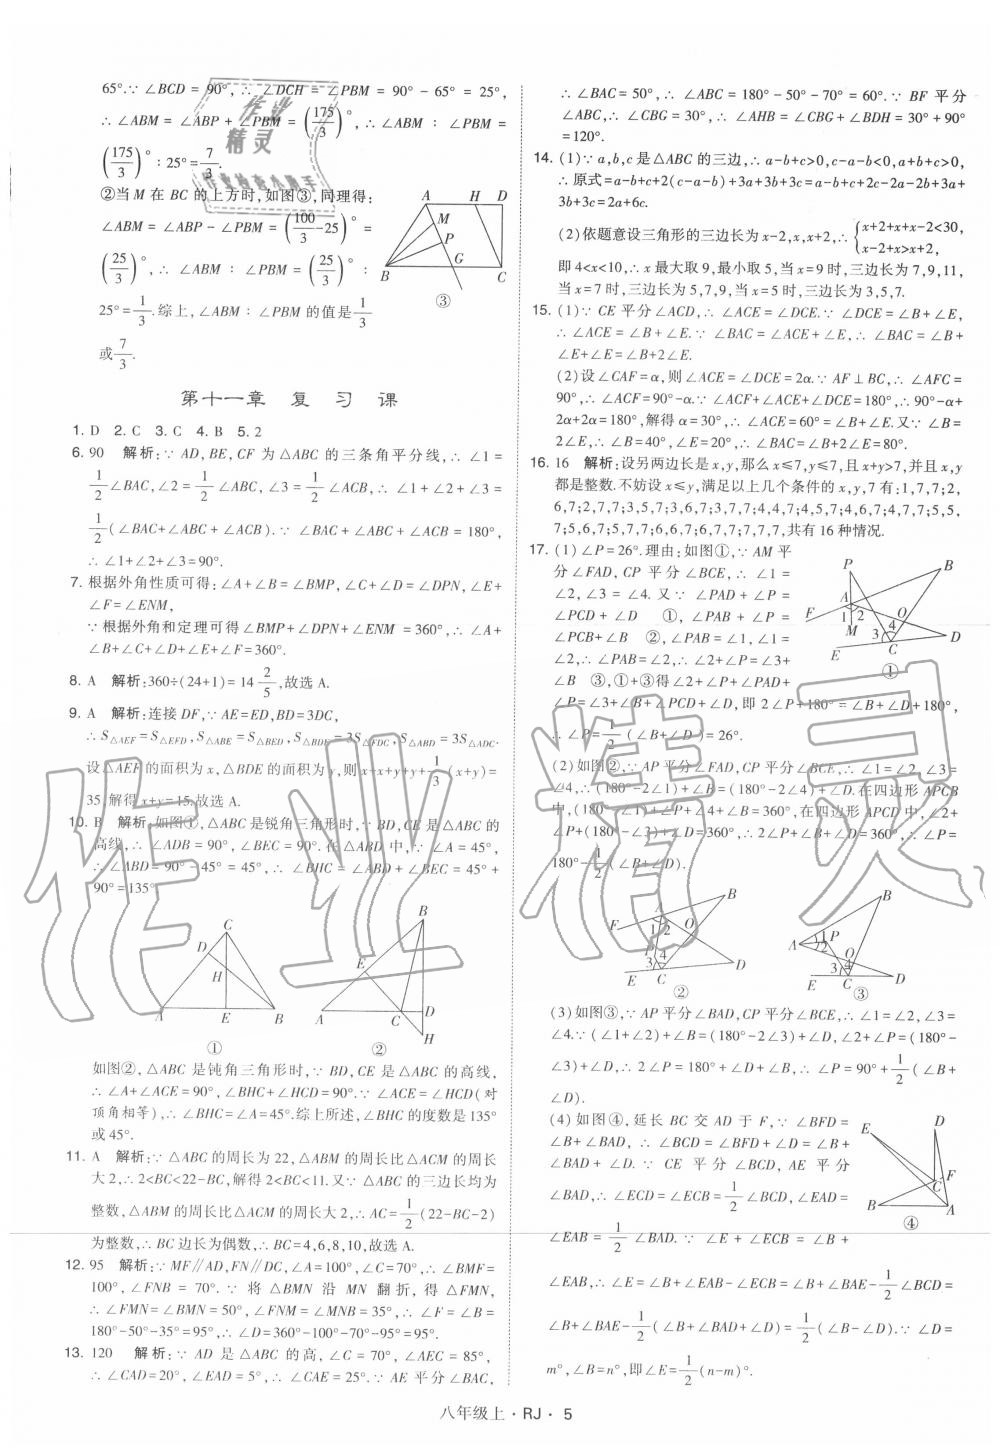 65°.∵ ∠BCD = 90°, ∴ ∠DCH = ∠PBM = 90° - 65° = 25°,
∴ ∠ABM = ∠ABP + ∠PBM = (175/3)°, ∴ ∠ABM ∶ ∠PBM =
(175/3)° ∶ 25° = 7/3.
②当 M 在 BC 的上方时,如图③,同理得:
∠ABM = ∠ABP - ∠PBM = (100/3 - 25)° =
(25/3)°, ∴ ∠ABM ∶ ∠PBM = (25/3)° ∶
25° = 1/3.综上,∠ABM ∶ ∠PBM 的值是 1/3
或 7/3.
A H D
M
P
G
B C
③
第十一章 复 习 课
1. D 2. C 3. C 4. B 5. 2
6. 90 解析:∵ AD,BE,CF 为△ABC 的三条角平分线,∴ ∠1 =
1/2 ∠BAC,∠2 = 1/2 ∠ABC,∠3 = 1/2 ∠ACB,∴ ∠1 + ∠2 + ∠3 =
1/2 (∠BAC+∠ABC + ∠ACB).∵ ∠BAC + ∠ABC + ∠ACB = 180°,
∴ ∠1+∠2+∠3=90°.
7. 根据外角性质可得:∠A+∠B=∠BMP,∠C+∠D=∠DPN,∠E+
∠F=∠ENM,
∵根据外角和定理可得∠BMP+∠DPN+∠ENM =360°,∴ ∠A+
∠B+∠C+∠D+∠E+∠F=360°.
8. A 解析:360÷(24+1)= 14 2/5,故选A.
9. A 解析:连接 DF,∵ AE=ED,BD=3DC,
∴ S△AEF=S△EFD,S△ABE=S△BED,S△BDF=3S△FDC,S△ABD=3S△ADC.
设△AEF 的面积为 x,△BDE 的面积为 y,则 x+x+y+y+1/3(x+y)=
35,解得 x+y=15,故选A.
10. B 解析:如图①,△ABC 是锐角三角形时,∵ BD,CE 是△ABC 的
高线,∴ ∠ADB = 90°,∠BEC = 90°.在△ABD 中,∵ ∠A = 45°,
∴ ∠ABD = 90° - 45° = 45°, ∴ ∠BHC = ∠ABD + ∠BEC = 45° +
90°=135°.
C
D
H
A E B
①
B
E
A C D
H
②
如图②,△ABC 是钝角三角形时,∵ BD,CE 是△ABC 的高线,
∴ ∠A+∠ACE=90°,∠BHC+∠HCD=90°.∵ ∠ACE=∠HCD(对
顶角相等),∴ ∠BHC=∠A=45°.综上所述,∠BHC 的度数是135°
或45°.
11. A 解析:∵ △ABC 的周长为 22,△ABM 的周长比△ACM 的周长
大2,∴ 2<BC<22-BC,解得 2<BC<11.又∵ △ABC 的三边长均为
整数,△ABM 的周长比△ACM 的周长大2,∴ AC=1/2(22-BC-2)
为整数,∴ BC 边长为偶数,∴ BC=4,6,8,10,故选A.
12. 95 解析:∵ MF∥AD,FN∥DC,∠A=100°,∠C=70°,∴ ∠BMF=
100°,∠FNB = 70°.∵ 将 △BMN 沿 MN 翻折,得 △FMN,
∴ ∠FMN=∠BMN=50°,∠FNM=∠MNB=35°,∴ ∠F=∠B=
180°-50°-35°=95°,∴ ∠D=360°-100°-70°-95°=95°.
13. 120 解析:∵ AD 是△ABC 的高,∠C = 70°,∠AEC = 85°,
∴ ∠CAD=20°,∠EAD=5°,∴ ∠CAE=25°.∵ AE 平分∠BAC,
∴ ∠BAC=50°,∴ ∠ABC = 180°-50°-70° = 60°.∵ BF 平分
∠ABC,∴ ∠CBG=30°,∴ ∠AHB=∠CBG+∠BDH=30°+90°
=120°.
14. (1)∵ a,b,c 是△ABC 的三边,∴ a-b+c>0,c-a-b<0,a+b+c>0,
∴ 原式=a-b+c+2(c-a-b)+3a+3b+3c=a-b+c+2c-2a-2b+3a+
3b+3c=2a+6c.
(2)依题意设三角形的三边长为 x-2,x,x+2,∴ {x+2+x+x-2<30,
x-2+x>x+2,
即 4<x<10,∴ x 最大取 9,最小取 5,当 x=9 时,三边长为 7,9,11,
当 x=7 时,三边长为 5,7,9,当 x=5 时,三边长为 3,5,7.
15. (1)∵ CE 平分∠ACD,∴ ∠ACE=∠DCE.∵ ∠DCE=∠B+∠E,
∴ ∠ACE=∠B+∠E.∵ ∠BAC=∠ACE+∠E,∴ ∠BAC=∠B+
∠E+∠E=∠B+2∠E.
(2)设∠CAF=α,则∠ACE=∠DCE=2α.∵ AF⊥BC,∴ ∠AFC=
90°,∴ ∠ACF=90°-α.∵ ∠ACF+∠ACE+∠DCE=180°,∴ 90°-α+
2α+2α=180°,解得 α=30°,∴ ∠ACE=60°=∠B+∠E.又∵ ∠B=
2∠E,∴ ∠B=40°,∠E=20°,∴ ∠BAC=∠B+2∠E=80°.
16. 16 解析:设另两边长是 x,y,那么 x≤7,y≤7,且 x+y>7,并且 x,y
都是整数.不妨设 x≤y,满足以上几个条件的 x,y,7 有:1,7,7;2,
6,7;2,7,7;3,5,7;3,6,7;3,7,7;4,4,7;4,5,7;4,6,7;4,7,7;5,5,
7;5,6,7;5,7,7;6,6,7;6,7,7;7,7,7,共有 16 种情况.
17. (1)∠P=26°.理由:如图①,∵ AM 平
分∠FAD,CP 平分∠BCE,∴ ∠1 =
∠2,∠3 = ∠4.又∵ ∠PAD + ∠P =
∠PCD+∠D ①,∠PAB + ∠P =
∠PCB+∠B ②,∠PAB=∠1,∠1=
∠2,∴ ∠PAB=∠2,∴ ∠2+∠P=∠3+
∠B ③,①+③得∠2+∠P+∠PAD+
∠P=∠3+∠B+∠PCD+∠D,即 2∠P+180°=∠B+∠D+180°,
∴ ∠P=1/2(∠B+∠D)=26°.
P B
A
F 1 2 O
M 3 4
E C D
①
(2)如图②,∵ AP 平分∠FAD,CP 平分∠BCE,∴ ∠1=∠2,∠3=
∠4,∴ (180°-2∠1)+∠B=(180°-2∠4)+∠D.在四边形 APCB
中,(180°-∠1)+∠P+∠4+∠B=360°,在四边形 APCD 中,∠2+
∠P+(180°-∠3)+∠D=360°,∴ 2∠P+∠B+∠D=360°,∴ ∠P=
180°-1/2(∠B+∠D).
B
A
F 1 2 O
P
3 4
E C D
②
B
A 1 P
2 O
3 4
E C D
③
(3)如图③,∵ AP 平分∠BAD,CP 平分∠BCE,∴ ∠1=∠2,∠3=
∠4.∵ (∠1+∠2)+∠B=(180°-2∠3)+∠D,∠2+∠P=(180°-
∠3)+∠D,∴ 2∠P=180°+∠D+∠B,∴ ∠P=90°+1/2(∠B+
∠D).
(4)如图④,延长 BC 交 AD 于 F,∵ ∠BFD=
∠B+∠BAD,∴ ∠BCD=∠BFD+∠D=∠B+
∠BAD + ∠D.∵ CE 平分∠BCD,AE 平分
∠BAD,∴ ∠ECD=∠ECB=1/2∠BCD,∠EAD=
∠EAB = 1/2 ∠BAD.∵ ∠E + ∠ECB = ∠B +
∠EAB,∴ ∠E=∠B+∠EAB-∠ECB=∠B+∠BAE-1/2∠BCD=
∠B+∠BAE-1/2(∠B+∠BAD+∠D)=1/2(∠B-∠D).∵ ∠D=
m°,∠B=n°,即∠E=1/2(n-m)°.
D
E
F
C
B A
④
作业精灵
八年级上·RJ·5